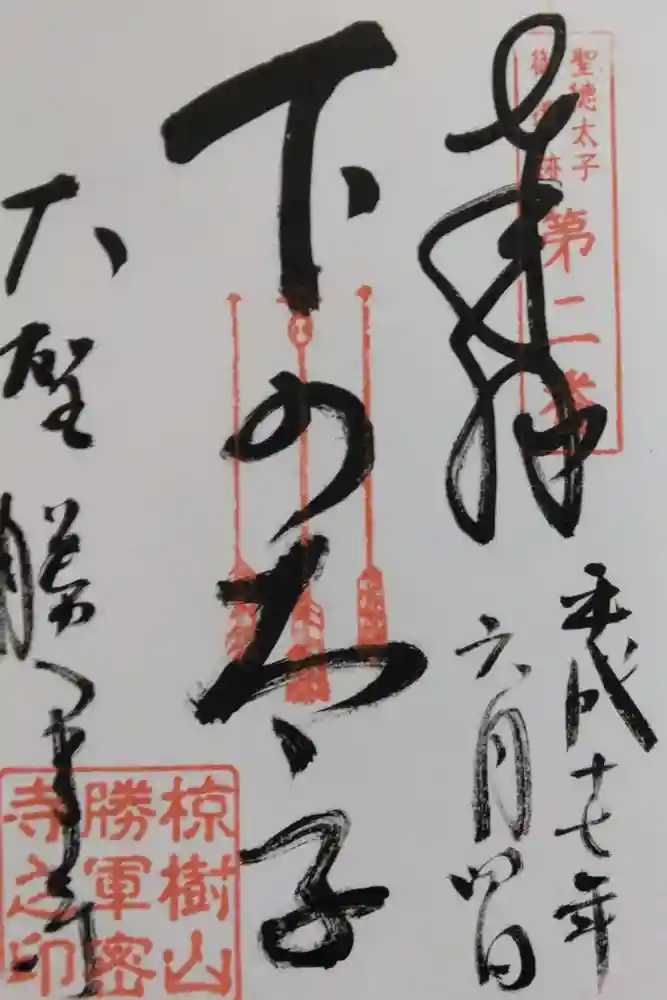 聖徳太子
御遺跡
第二番
奉拝
平成十七年
六月四日
下の太子
大聖勝軍寺
椋樹山
勝軍密
寺之印